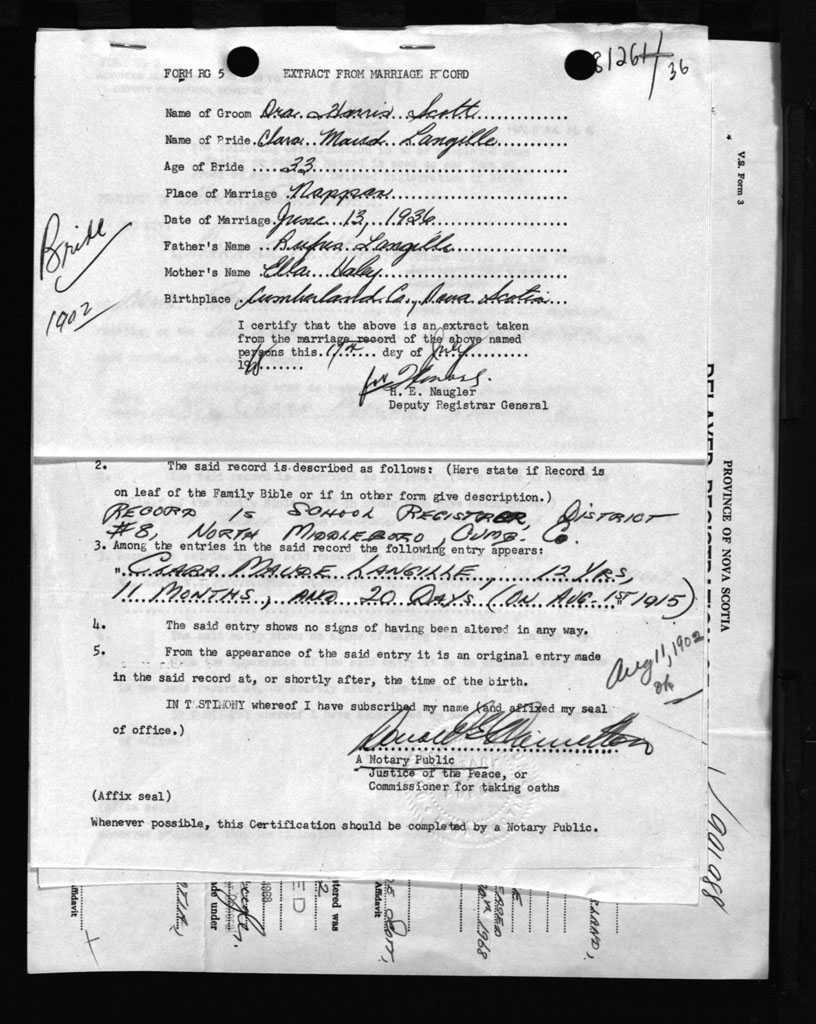 FORM RG 5 EXTRACT FROM MARRIAGE RECORD
81261/36
Name of Groom Ora Harris Scott
Name of Bride Clara Maud Langille
Age of Bride 33
Place of Marriage Nappan
Date of Marriage June 13, 1936
Father's Name Rufus Langille
Mother's Name Ella Haley
Birthplace Cumberland Co., Nova Scotia
Bride
1902
I certify that the above is an extract taken
from the marriage record of the above named
persons this 19th day of July
19
for
H. E. Naugler
Deputy Registrar General
2. The said record is described as follows: (Here state if Record is
on leaf of the Family Bible or if in other form give description.)
RECORD IS SCHOOL REGISTER, DISTRICT
#8, NORTH MIDDLEBORO, CUMB. Co.
3. Among the entries in the said record the following entry appears:
"CLARA MAUDE LANGILLE, 12 YRS,
11 MONTHS, AND 20 DAYS (ON AUG. 1ST" 1915)
4. The said entry shows no signs of having been altered in any way.
5. From the appearance of the said entry it is an original entry made
in the said record at, or shortly after, the time of the birth.
Aug 11, 1902
ok
IN TESTIMONY whereof I have subscribed my name (and affixed my seal
of office.)
A Notary Public
Justice of the Peace, or
Commissioner for taking oaths
(Affix seal)
Whenever possible, this Certification should be completed by a Notary Public.
V.S. Form 3
PROVINCE OF NOVA SCOTIA
DELAYED REGISTRATION OF
1901088
Affidavit
de under
1968
ED
stered was
Affidavit
SCOTT,
1968
LAND,